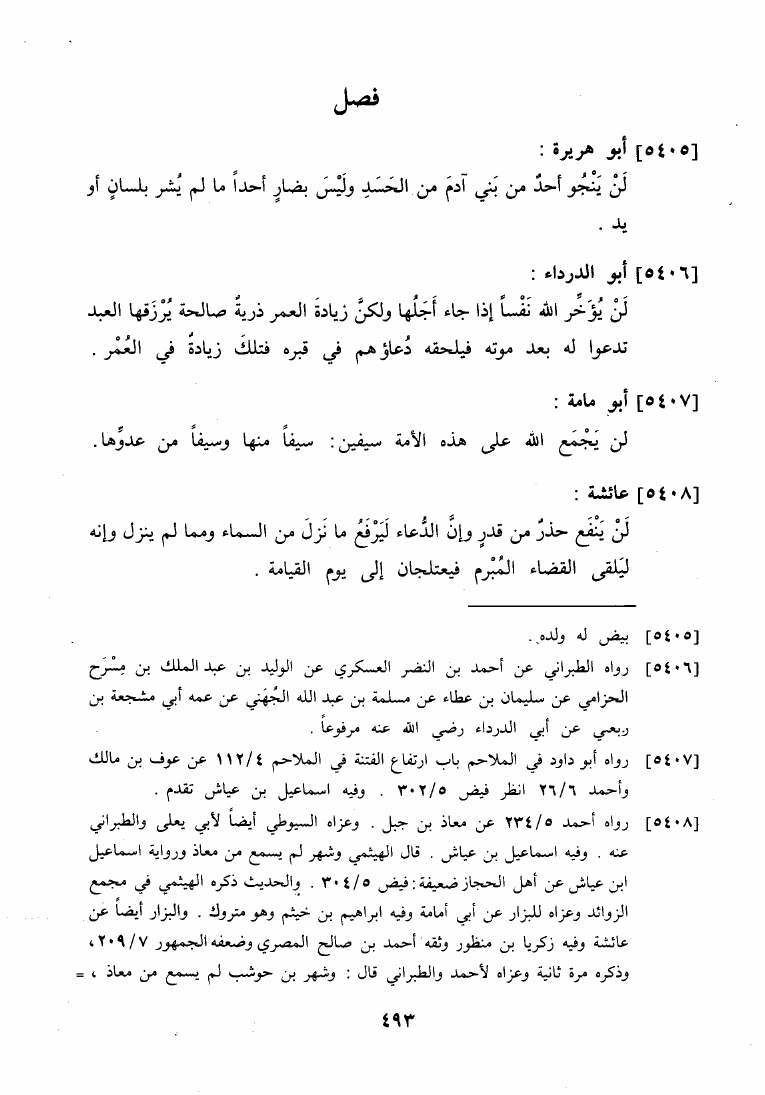 فصل
[٥٤٠٥] أبو هريرة :
لَنْ يَنْجُو أحدٌ من بَني آدمَ من الحَسَدِ ولَيْسَ بضارٍ أحداً ما لم يُشر بلسانٍ أو
يد .
[٥٤٠٦] أبو الدرداء :
لَنْ يُؤَخِّر الله نَفْساً إذا جاء أَجَلُها ولكنَّ زيادةَ العمر ذريةٌ صالحة يُرْزَقها العبد
تدعوا له بعد موته فيلحقه دُعاؤهم في قبره فتلكَ زيادةٌ في العُمْر .
[٥٤٠٧] أبو مامة :
لن يَجْمَع الله على هذه الأمة سيفين: سيفاً منها وسيفاً من عدوِّها.
[٥٤٠٨] عائشة :
لَنْ يَنْفَع حذرٌ من قدرٍ وإنَّ الدُّعاء لَيَرْفَعُ ما نَزلَ من السماء ومما لم ينزل وإنه
ليَلقى القضاء المُبْرم فيعتلجان إلى يوم القيامة .
[٥٤٠٥] بيض له ولده.
[٥٤٠٦] رواه الطبراني عن أحمد بن النضر العسكري عن الوليد بن عبد الملك بن مِسْرَح
الحزامي عن سليمان بن عطاء عن مسلمة بن عبد الله الجُهَني عن عمه أبي مشجعة بن
ربعي عن أبي الدرداء رضي الله عنه مرفوعاً .
[٥٤٠٧] رواه أبو داود في الملاحم باب ارتفاع الفتنة في الملاحم ١١٢/٤ عن عوف بن مالك
وأحمد ٢٦/٦ انظر فيض ٣٠٢/٥ . وفيه اسماعيل بن عياش تقدم .
[٥٤٠٨] رواه أحمد ٢٣٤/٥ عن معاذ بن جبل . وعزاه السيوطي أيضاً لأبي يعلى والطبراني
عنه . وفيه اسماعيل بن عياش . قال الهيثمي وشهر لم يسمع من معاذ ورواية اسماعيل
ابن عياش عن أهل الحجاز ضعيفة: فيض ٣٠٤/٥ . والحديث ذكره الهيثمي في مجمع
الزوائد وعزاه للبزار عن أبي أمامة وفيه ابراهيم بن خيثم وهو متروك . والبزار أيضاً عن
عائشة وفيه زكريا بن منظور وثقه أحمد بن صالح المصري وضعفه الجمهور ٢٠٩/٧ ،
وذكره مرة ثانية وعزاه لأحمد والطبراني قال : وشهر بن حوشب لم يسمع من معاذ ، =
٤٩٣